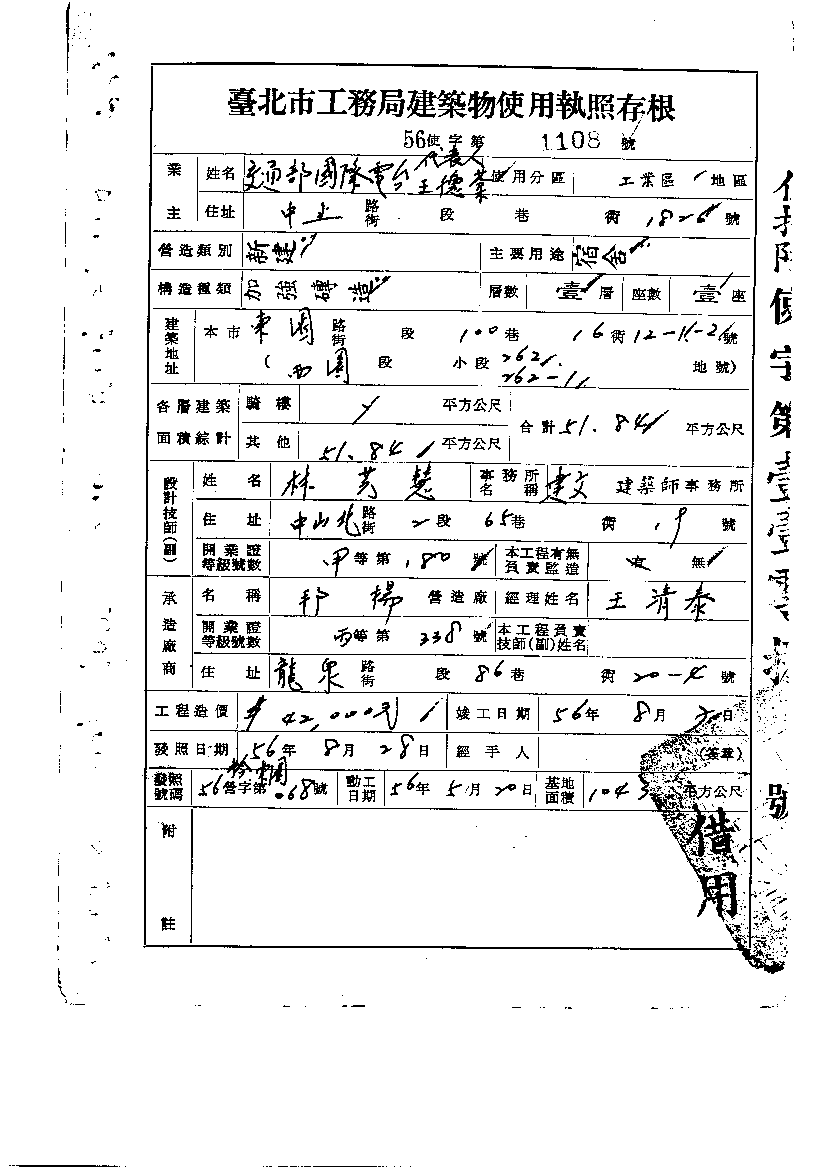 臺北市工務局建築物使用執照存根
56使字第 1108 號
業主 姓名 交通部國際電台 代表人 王德 使用分區 工業區 地區
住址 中正 路街 段 巷 衖 號
營造類別 新建 主要用途 宿舍
構造種類 加強磚造 層數 壹層 座數 壹座
建築地址 本市 東園 路街 段 100巷 16衖 號
( 西園 段 小段 262 262-1 地號)
各層建築面積綜計 騎樓 平方公尺 合計 51.84 平方公尺
其他 51.84 平方公尺
設計技師(副) 姓名 林芳慧 事務所名稱 建文 建築師事務所
住址 中山北 路街 2段 65巷 衖 19 號
開業證等級號數 甲等第 180 號 本工程有無負責監造 有 無
承造廠商 名稱 楊 營造廠 經理姓名 王清泰
開業證等級號數 丙等第 338 號 本工程負責技師(副)姓名
住址 龍泉 路街 段 86巷 衖 20-4 號
工程造價 $42,000元 竣工日期 56年 8月 日
發照日期 56年 8月 28日 經手人 (簽章)
發照號碼 56營字第 068號 動工日期 56年 5月 20日 基地面積 平方公尺
附註
借用
使字第壹壹零
號